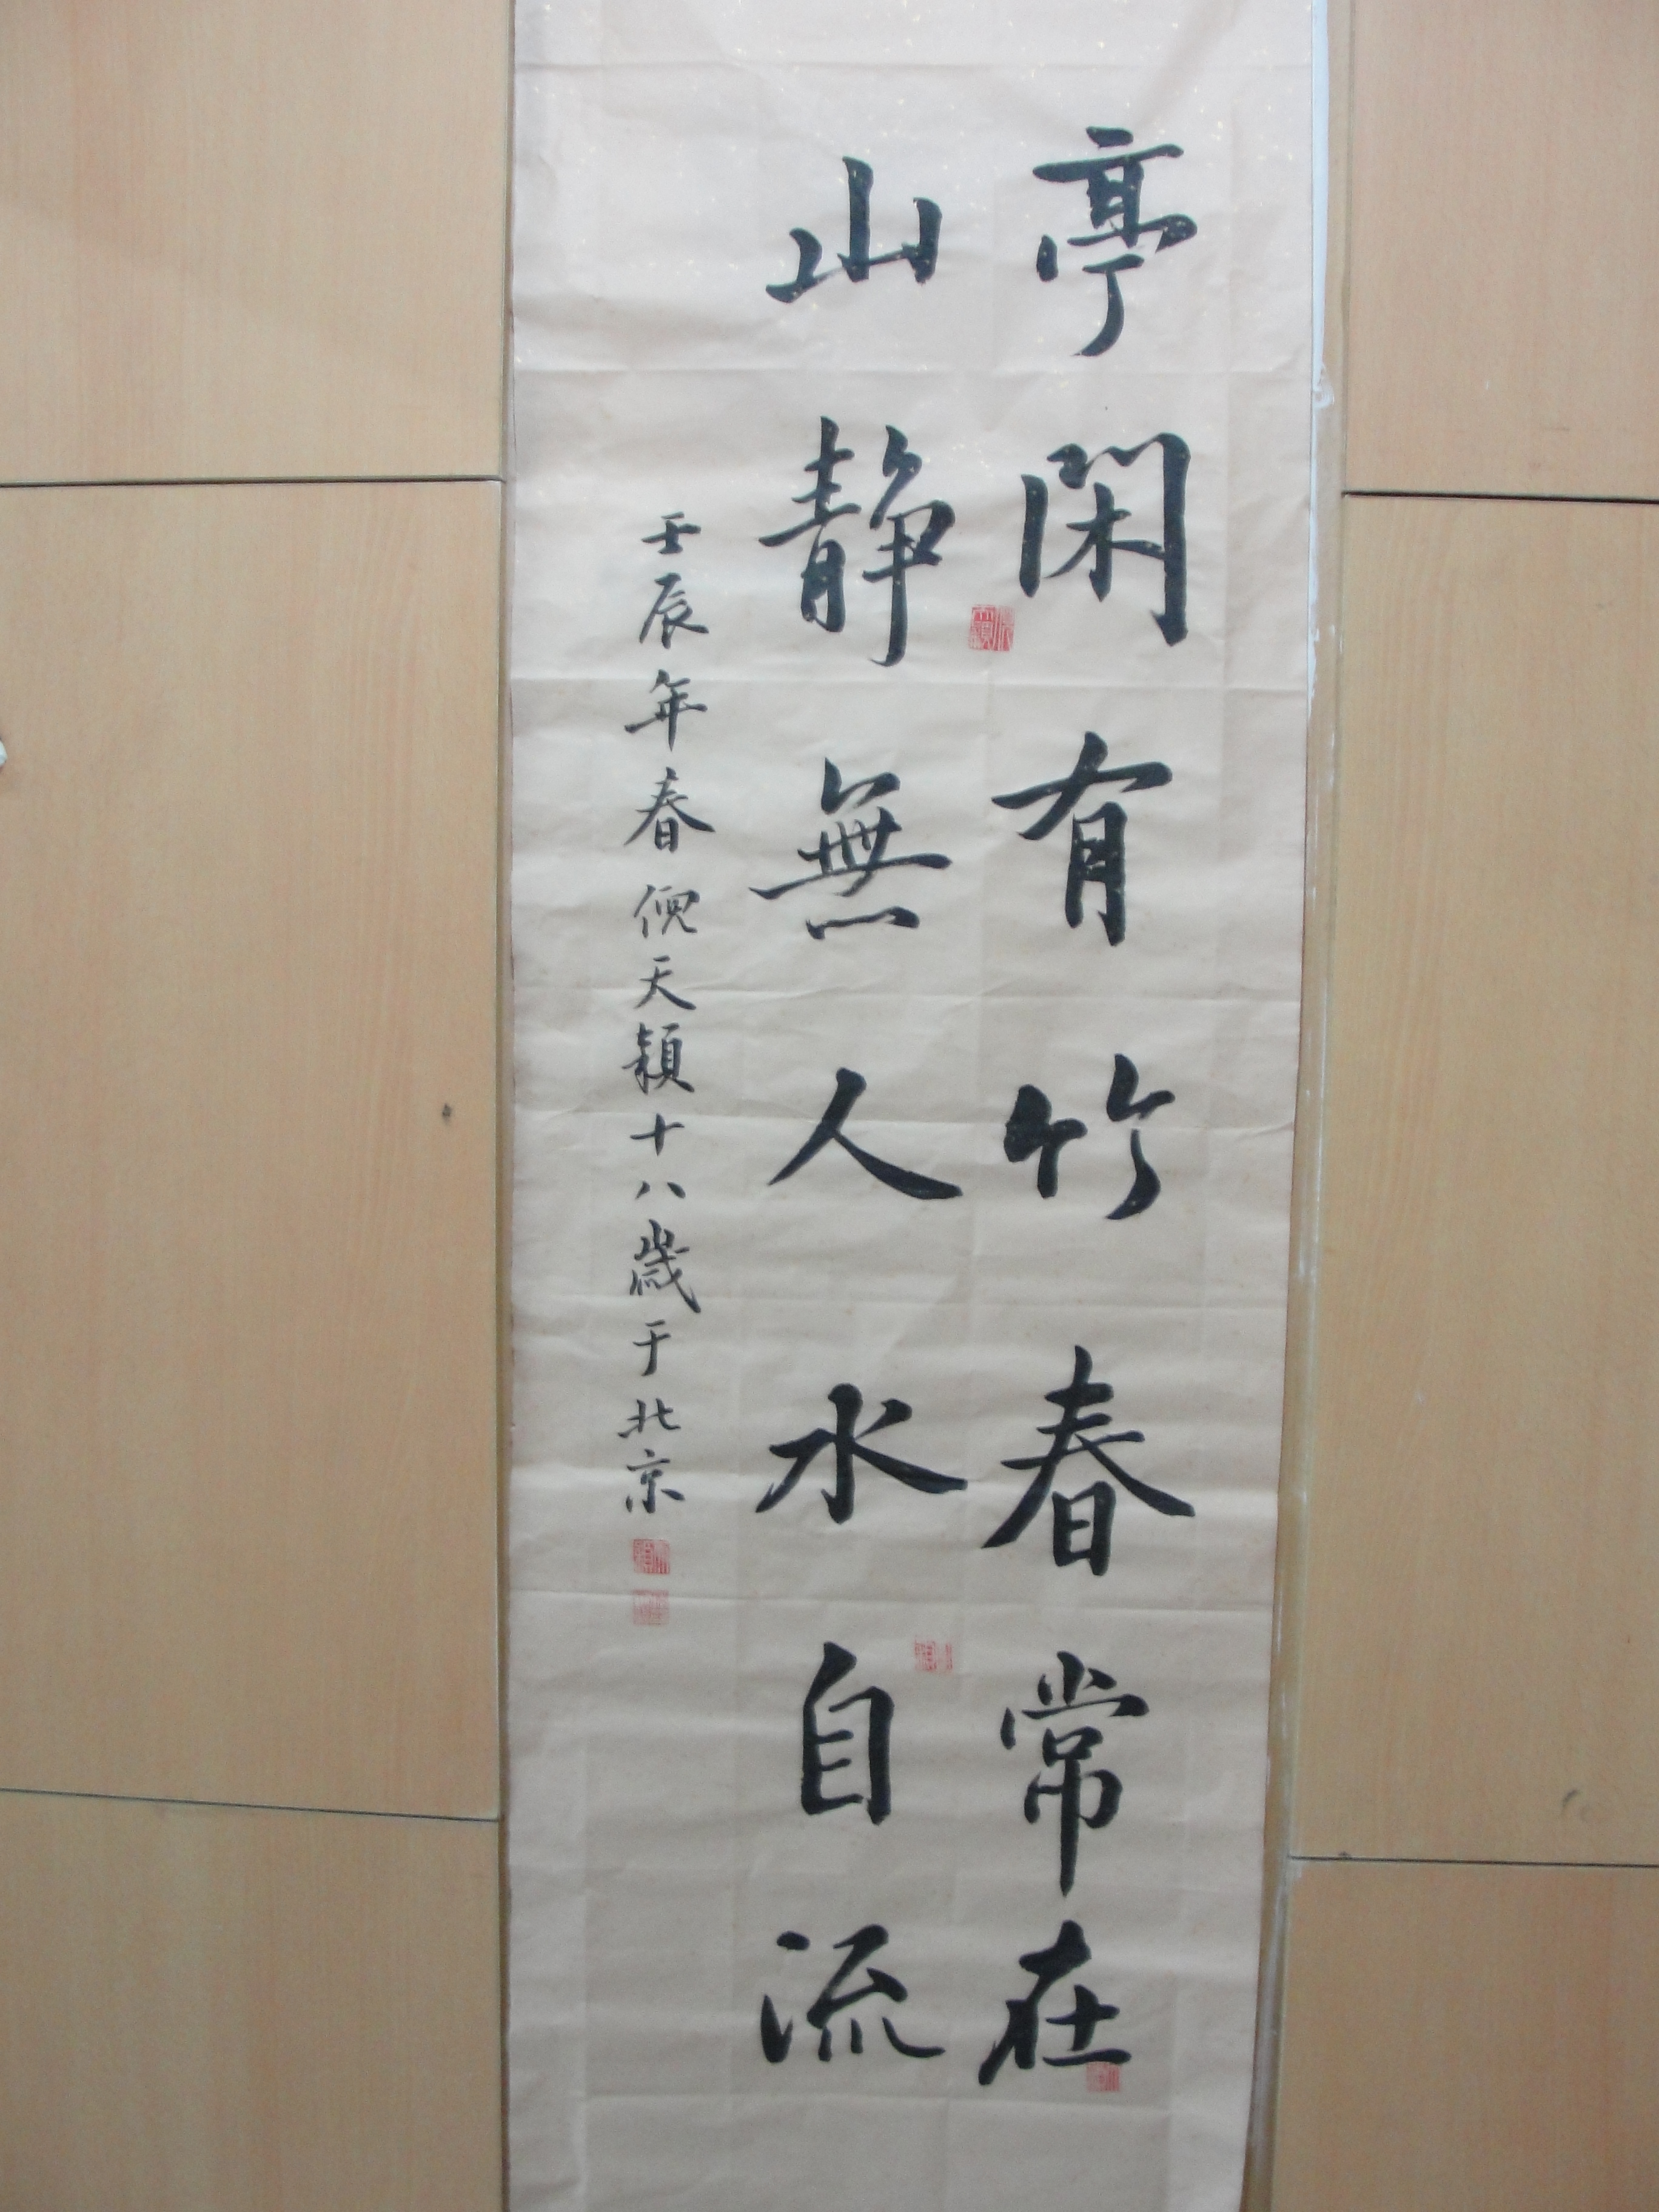 亭閑有竹春常在
山靜無人水自流
壬辰年春倪天穎十八歲于北京